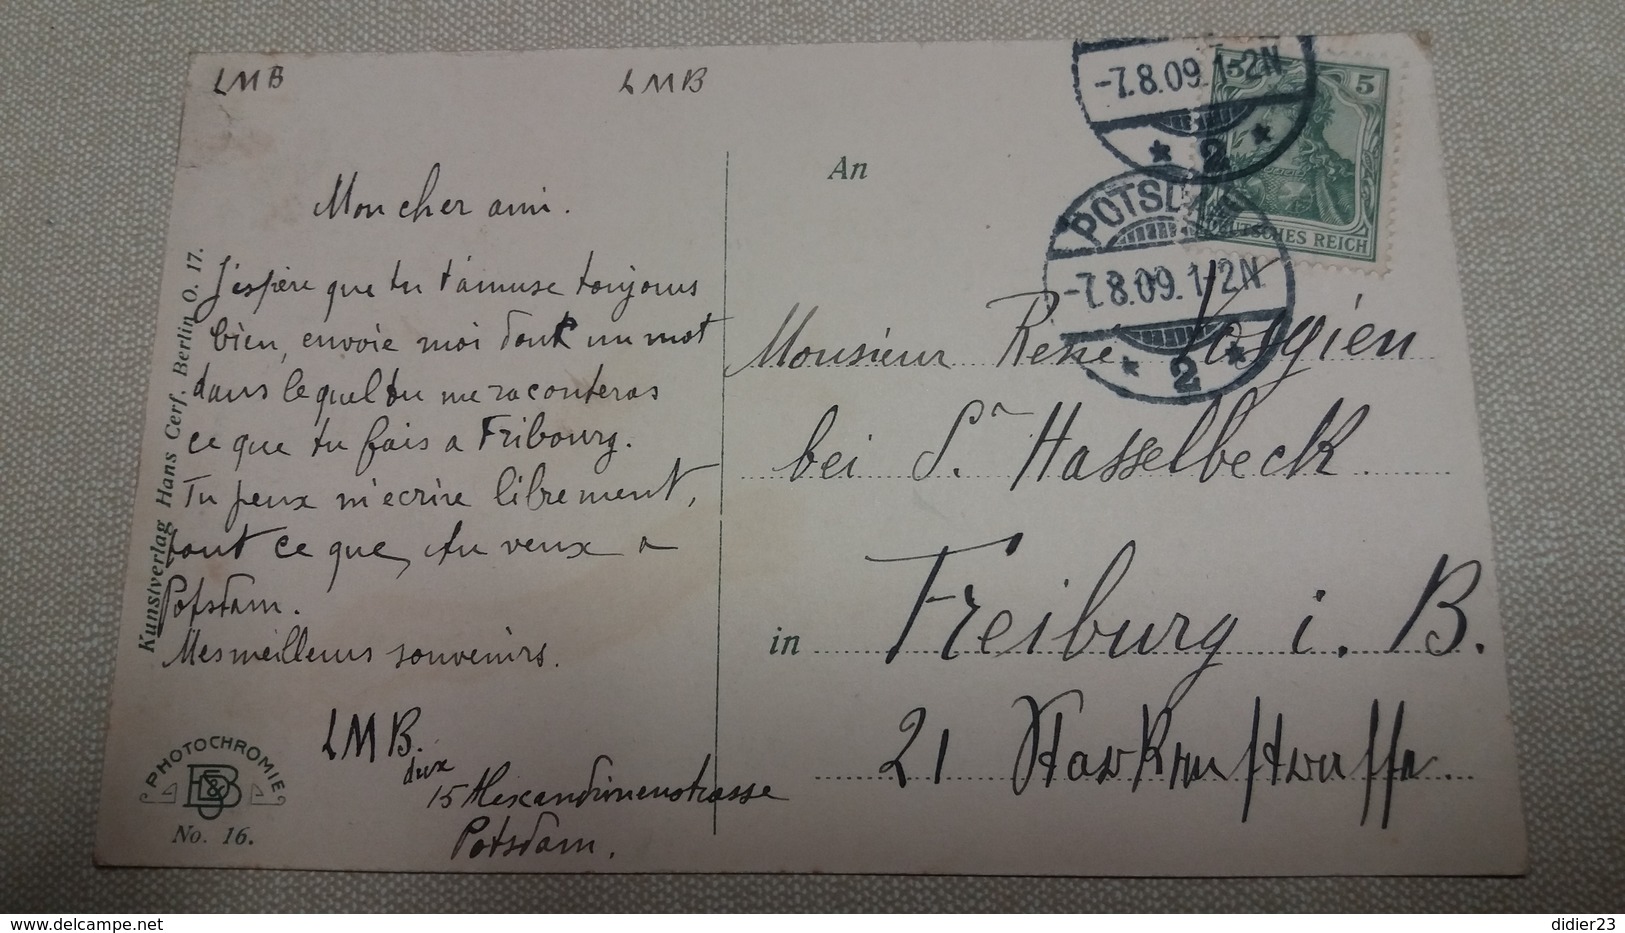 LMB
LMB
Mon cher ami.
J'espère que tu t'amuse toujours
bien, envoie moi donk un mot
dans lequel tu me raconteras
ce que tu fais a Fribourg.
Tu peux m'ecrire librement,
tout ce que, tu veux a
Potsdam.
Mes meilleurs souvenirs.
LMB.
15 Alexandrinenstrasse
Potsdam.
Kunstverlag Hans Cerf, Berlin O. 17.
PHOTOCHROMIE
No. 16.
-7.8.09.1-2N
* 2 *
POTSDAM
-7.8.09.1-2N
* 2 *
5 5
DEUTSCHES REICH
An
Monsieur René
bei Sr. Hasselbeck
in Freiburg i. B.
21
delcampe.net
didier23